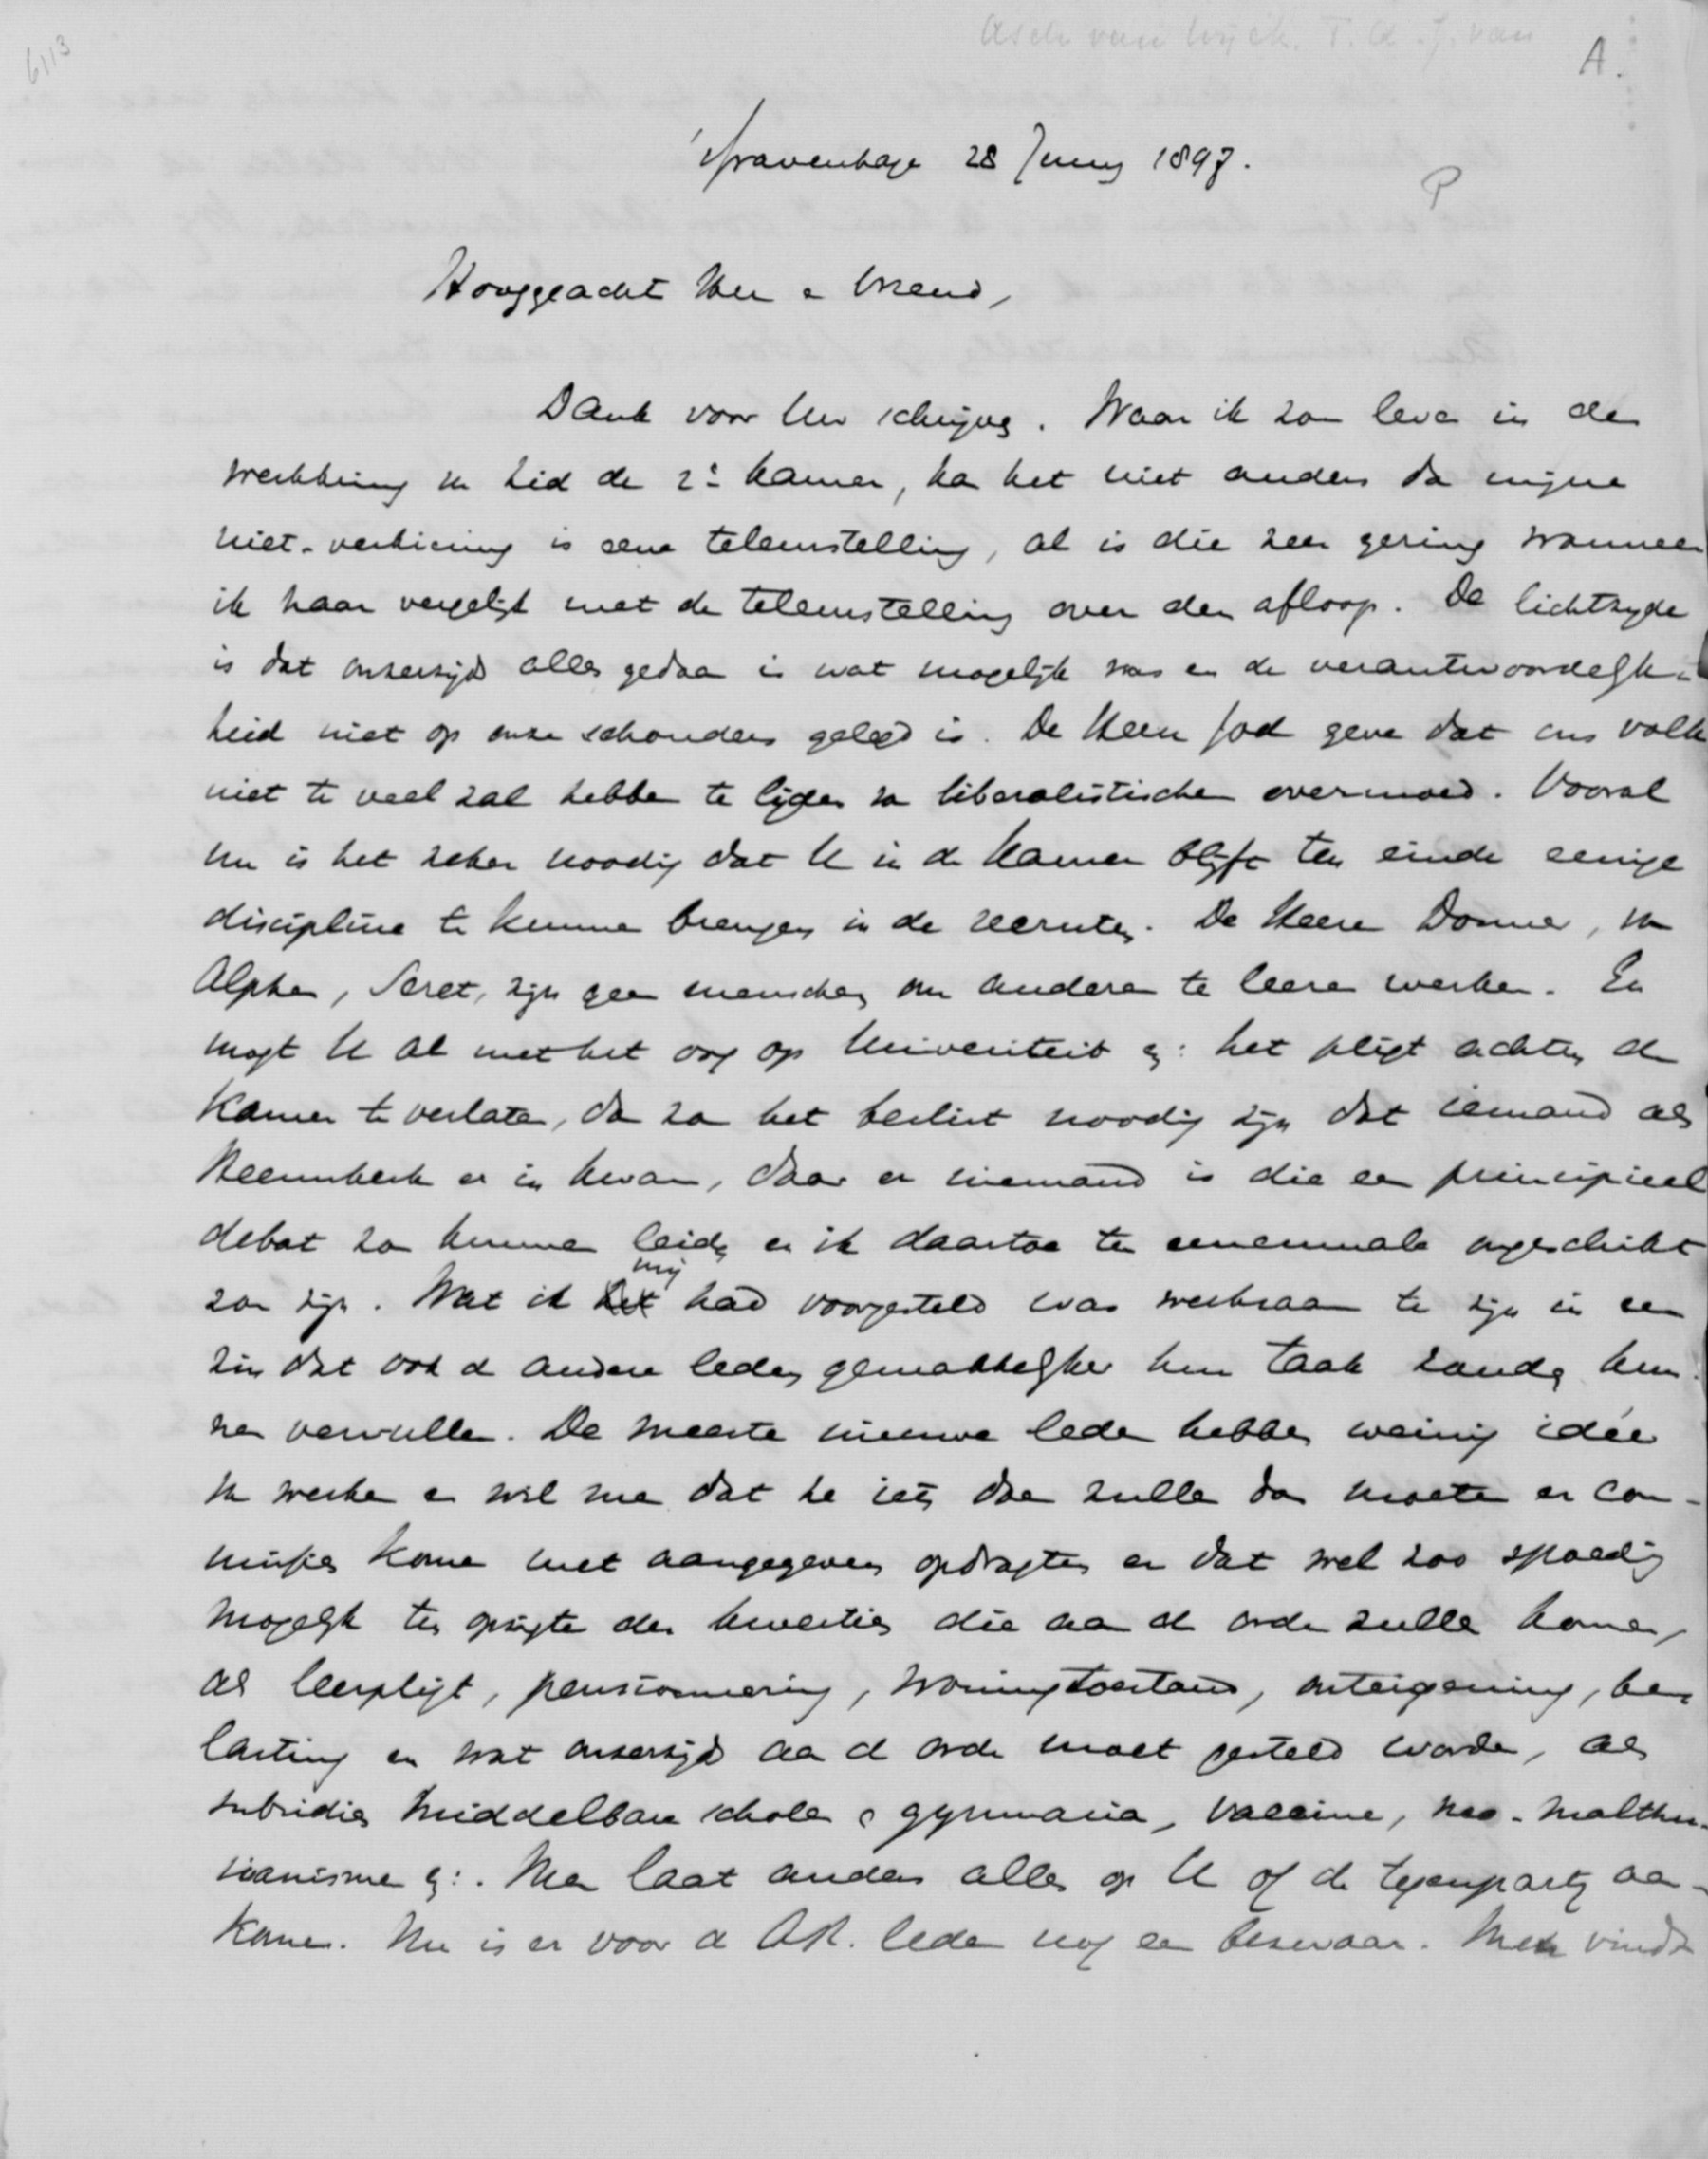 6113
Asch van Wijck. T. A. J. van
A.
's Gravenhage 28 Juny 1897.
P
Hooggeacht Heer en Vriend,
Dank voor Uw schrijven. Waar ik zou leven in de
werkkring van lid der 2e Kamer, kan het niet anders dan mijne
niet-verkiezing is eene teleurstelling, al is die zeer gering wanneer
ik haar vergelijk met de teleurstelling over den afloop. De lichtzyde
is dat onzerzijds alles gedaan is wat mogelijk was en de verantwoordelijk-
heid niet op onze schouders gelegd is. De Heere God geve dat ons volk
niet te veel zal hebben te lijden van liberalistischen overmoed. Vooral
nu is het zeker noodig dat U in de Kamer blijft ten einde eenige
discipline te kunnen brengen in de recruten. De Heeren Donner, van
Alphen, Seret, zijn geen menschen om anderen te leeren werken. En
mogt U al met het oog op Universiteit enz: het pligt achten de
Kamer te verlaten, dan zou het beslist noodig zijn dat iemand als
Heemskerk er in kwam, daar er niemand is die een principieel
debat zou kunnen leiden en ik daartoe ten eenenmale ongeschikt
zou zijn. Wat ik mij had voorgesteld was werkzaam te zijn in een
zin dat ook de andere leden gemakkelijker hun taak zouden kun-
nen vervullen. De meeste nieuwe leden hebben weinig idée
van werken en wil men dat ze iets doen zullen dan moeten er com-
missies komen met aangegeven opdragten en dat wel zoo spoedig
mogelijk ten opzigte der kwesties die aan de orde zullen komen,
als leerpligt, pensionneering, woningtoestand, onteigening, be-
lasting en wat onzerzijds aan de orde moet gesteld worden, als
subsidies middelbare scholen en gymnasia, vaccine, neo-malthu-
sianisme enz:. Men laat anders alles op U of de tegenpartij aan-
komen. Nu is er voor de A.R. leden nog een bezwaar. Men vindt